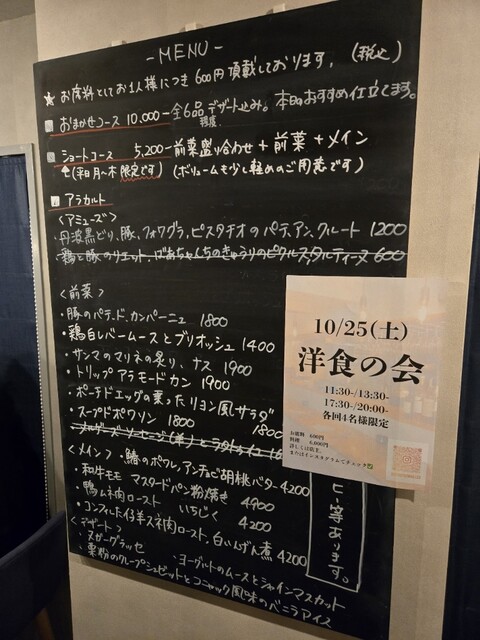 - MENU -
★ お席料としてお1人様につき600円頂戴しております。(税込)
おまかせコース 10,000- 全6品 デザート込み。本日のおすすめ仕立てます。
程度
ショートコース 5,200- 前菜盛り合わせ + 前菜 + メイン
(平日月〜木限定です) (ボリュームも少し軽めのご用意です)
アラカルト
<アミューズ>
・丹波黒どり、豚、フォワグラ、ピスタチオのパテ、アン、クルート 1200
・鶏と豚のリエット、ばあちゃんちのきゅうりのピクルス、タルティーヌ 600
<前菜>
・豚のパテ、ド、カンパーニュ 1800
・鶏白レバームースとブリオッシュ 1400
・サンマのマリネの炙り、ナス 1900
・トリップ アラモード カン 1900
・ポーチドエッグの乗ったリヨン風サラダ 1800
・スープドポワソン 1800
・メルゲーズソーセージ(羊)とラタトゥイユ
<メイン>・鰆のポワレ、アンチョビ胡桃バター 4200
・和牛モモ マスタードパン粉焼き 4900
・鴨ムネ肉ロースト いちじく 4200
・コンフィした仔羊スネ肉ロースト、白いんげん煮 4200
<デザート>
・ヌガーグラッセ ・ヨーグルトのムースとシャインマスカット
・栗粉のクレープシュゼットとコニャック風味のバニラアイス
ヒ、等あります。
10/25(土)
洋食の会
11:30-/13:30-
17:30-/20:00-
各回4名様限定
お席料 600円
料理 6,600円
詳しくは店主、
またはインスタグラムでチェック✅